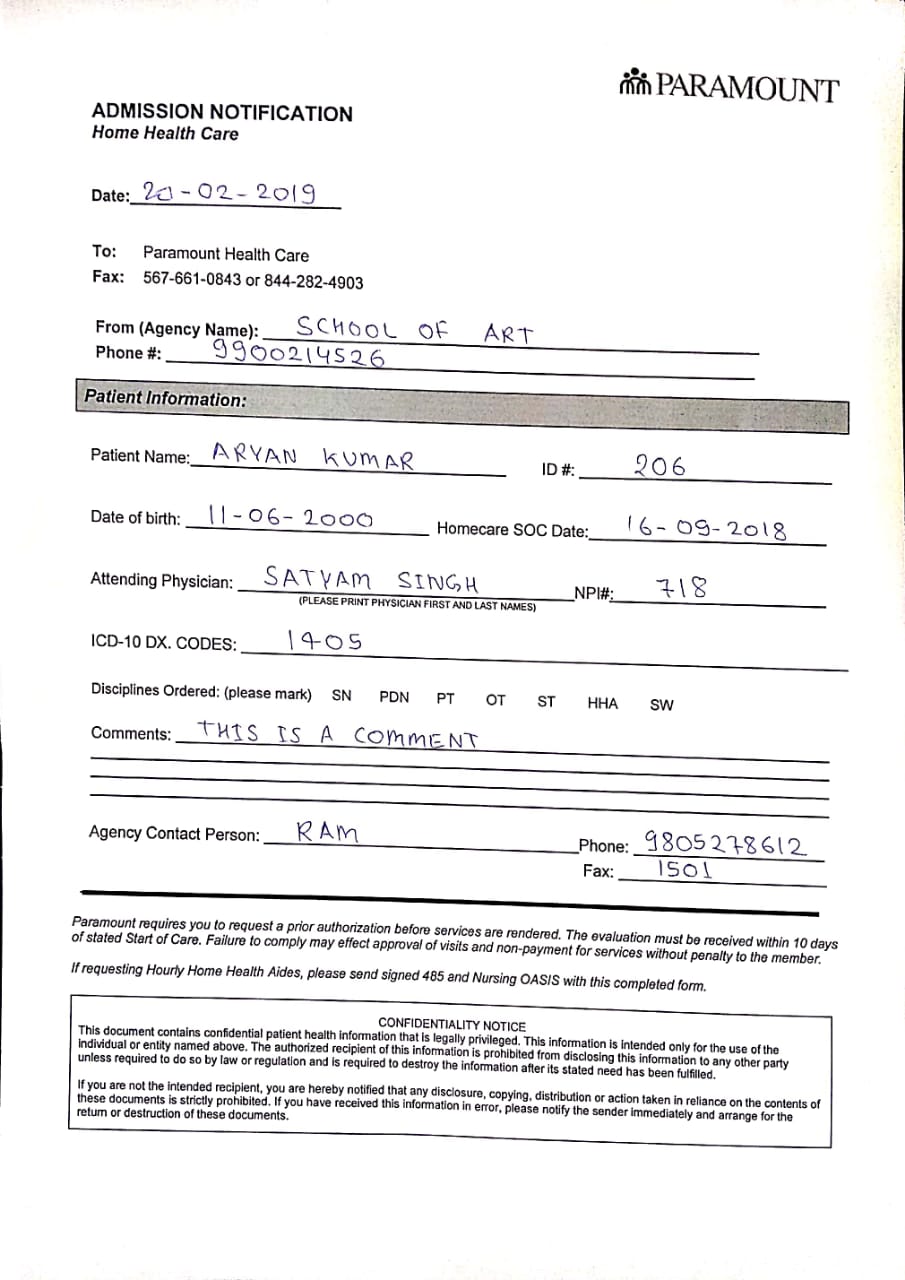 PARAMOUNT
ADMISSION NOTIFICATION
Home Health Care
Date: 20-02-2019
To: Paramount Health Care
Fax: 567-661-0843 or 844-282-4903
From (Agency Name): SCHOOL OF ART
Phone #: 9900214526
Patient Information:
Patient Name: ARYAN KUMAR ID #: 206
Date of birth: 11-06-2000 Homecare SOC Date: 16-09-2018
Attending Physician: SATYAM SINGH NPI#: 718
(PLEASE PRINT PHYSICIAN FIRST AND LAST NAMES)
ICD-10 DX. CODES: 1405
Disciplines Ordered: (please mark) SN PDN PT OT ST HHA SW
Comments: THIS IS A COMMENT
Agency Contact Person: RAM Phone: 9805278612
Fax: 1501
Paramount requires you to request a prior authorization before services are rendered. The evaluation must be received within 10 days
of stated Start of Care. Failure to comply may effect approval of visits and non-payment for services without penalty to the member.
If requesting Hourly Home Health Aides, please send signed 485 and Nursing OASIS with this completed form.
CONFIDENTIALITY NOTICE
This document contains confidential patient health information that is legally privileged. This information is intended only for the use of the
individual or entity named above. The authorized recipient of this information is prohibited from disclosing this information to any other party
unless required to do so by law or regulation and is required to destroy the information after its stated need has been fulfilled.
If you are not the intended recipient, you are hereby notified that any disclosure, copying, distribution or action taken in reliance on the contents of
these documents is strictly prohibited. If you have received this information in error, please notify the sender immediately and arrange for the
return or destruction of these documents.